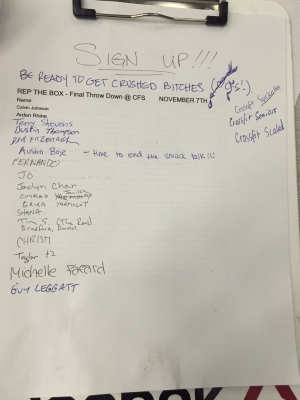 SIGN UP!!!
BE READY TO GET CRUSHED BITCHES
REP THE BOX - Final Throw Down @ CFS NOVEMBER 7TH
Name
Calvin Johnson
Arden Rhine
Terry Stevens
Dustin Thompson
Austin Bose - time to end the smack talk!!!
FERNANDO
JO
Jaclyn Char
CONRAD
ERIKA YARMOLOY
SHANA
Tim S. (The Real)
Bradford, David
CHRISTI
Taylor +2
Michelle Favard
GUY LEGGATT
Crossfit
Crossfit Seniors
Crossfit Scaled